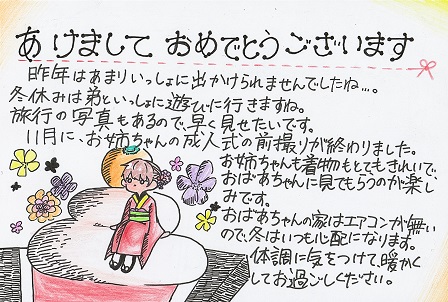 あけまして おめでとうございます
昨年はあまりいっしょに出かけられませんでしたね…。
冬休みは弟といっしょに遊びに行きますね。
旅行の写真もあるので、早く見せたいです。
11月に、お姉ちゃんの成人式の前撮りが終わりました。
お姉ちゃんも着物もとてもきれいで、
おばあちゃんに見てもらうのが楽し
みです。
おばあちゃんの家はエアコンが無い
ので、冬はいつも心配になります。
体調に気をつけて、暖かく
してお過ごしください。